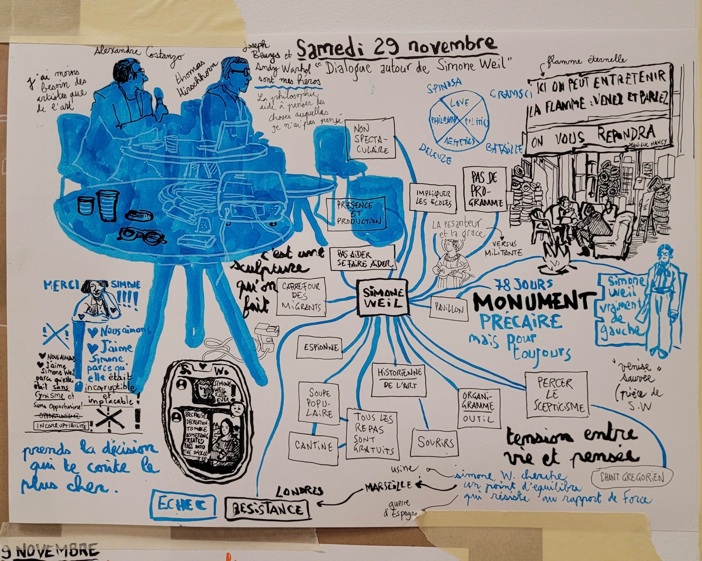 Samedi 29 novembre
"Dialogue autour de Simone Weil"
Alexandre Costanzo
Thomas
Hirschhorn
Joseph
Beuys et
Andy Warhol
sont mes héros
La philosophie
aide à penser des
choses auxquelles
je n'ai pas pensé
J'ai moins
besoin des
artistes que
de l'art
flamme éternelle
ICI ON PEUT ENTRETENIR
LA FLAMME : VENEZ ET PARLEZ
ON VOUS REPONDRA
JEAN-LUC NANCY
SPINOSA
GRAMSCI
BATAILLE
DELEUZE
LOVE
PHILOSOPHIE
POLITIC
NON
SPECTA-
CULAIRE
IMPLIQUER
LES ECOLES
PAS DE
PRO-
GRAMME
PRESENCE
ET
PRODUCTION
La pesanteur
et la grâce
VERSUS
MILITANTE
PAS AIDER
SE FAIRE AIDER
c'est une
sculpture
qu'on
fait
CARREFOUR
DES
MIGRANTS
SIMONE
WEIL
PAVILLON
78 JOURS
MONUMENT
PRÉCAIRE
mais pour
toujours
Simone
Weil
vraiment
de
gauche
"Venise"
sauvée
(pièce de
S.W
MERCI SIMONE
!!!!
♥ Nous aimons
♥ J'aime
Simone
parce qu'
elle était
incorruptible
et
implacable
♥ NOUS AIMONS
♥ J'aime
Simone Weil
parce qu'elle
était sans
Cynisme et
Sans Opportunisme!
INCORRUPTIBILITÉ
prends la décision
qui te coûte le
plus cher.
S ♥ W
SIMONE
WEIL
ESPIONNE
HISTORIENNE
DE L'ART
SOUPE
POPU-
LAIRE
CANTINE
TOUS LES
REPAS
SONT
GRATUITS
SOURIRS
ORGANI-
GRAMME
OUTIL
PERCER
LE
SCEPTICISME
tension entre
vie et pensée
CHANT GREGORIEN
ECHEC
RESISTANCE
LONDRES
MARSEILLE
usine
guerre
d'Espagne
Simone W. cherche
un point d'équilibre
qui résiste au rapport de Force
9 NOVEMBRE